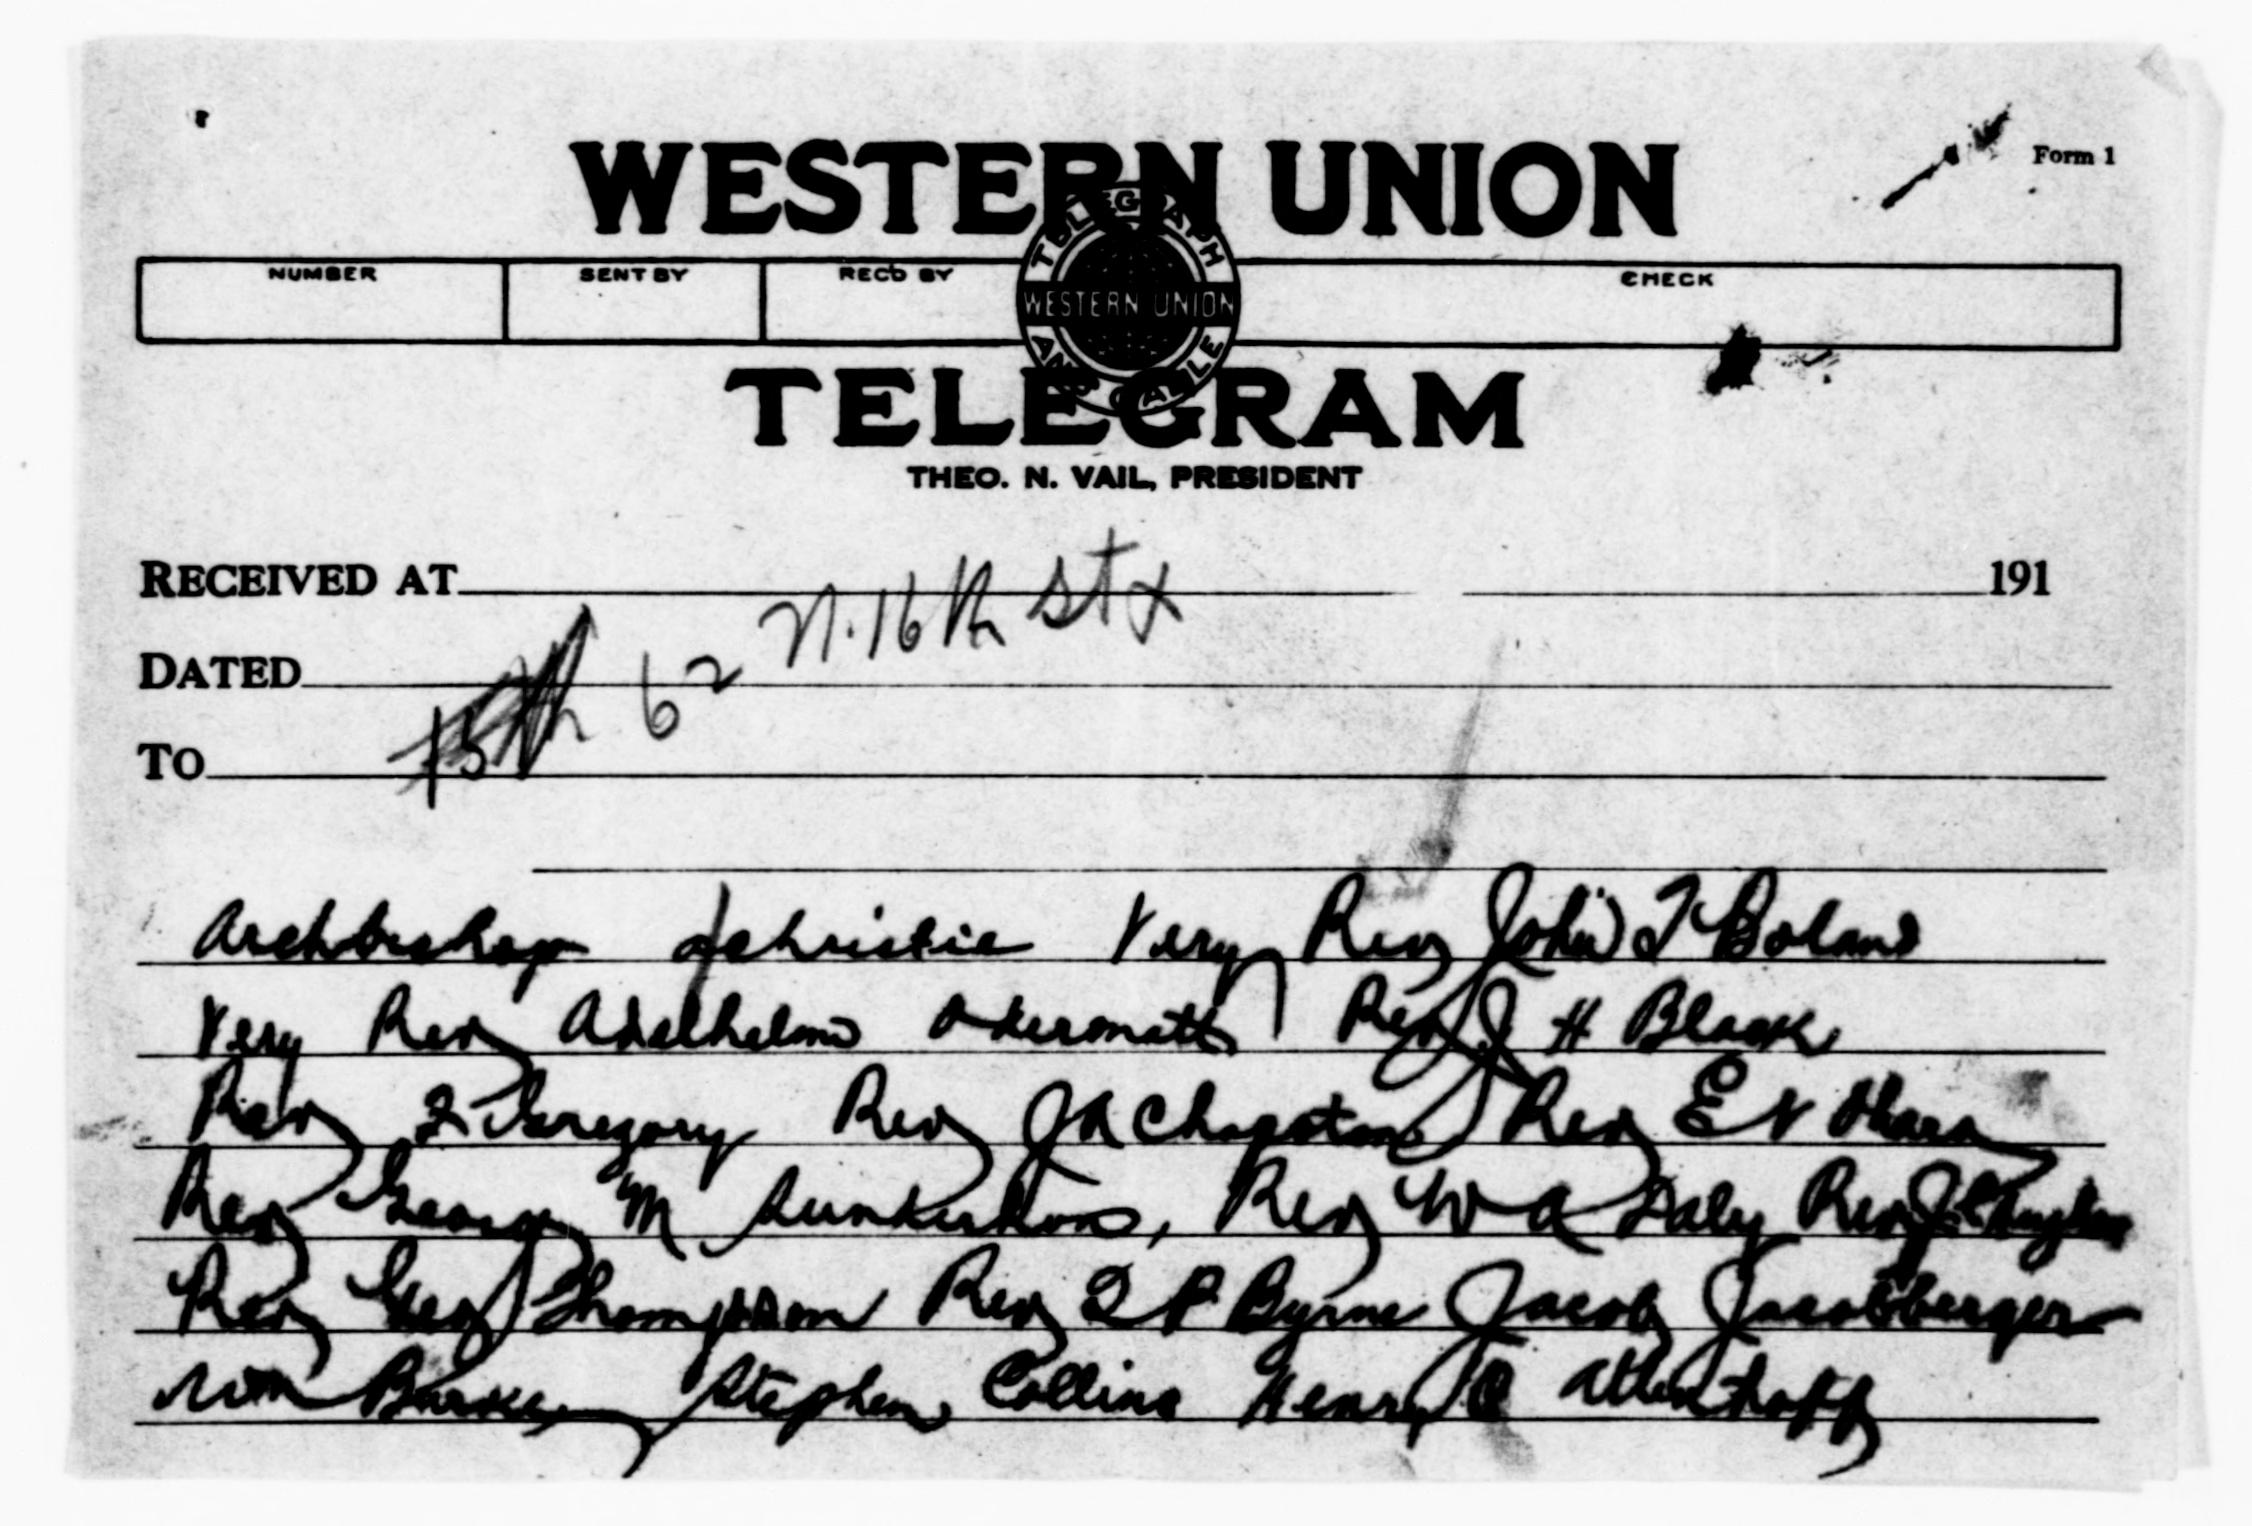 Form 1
WESTERN UNION
TELEGRAPH
WESTERN UNION
AND CABLE
NUMBER SENT BY REC'D BY CHECK
TELEGRAM
THEO. N. VAIL, PRESIDENT
RECEIVED AT 191
DATED 62 N. 16th St
TO 15th
Archbishop Christie Very Rev John T Boland
Very Rev Adelhelm Odermatt Rev J H Black
Rev F Gregory Rev J R Rev E V Ohara
Rev George M Rev W A Daly Rev J C Hughes
Rev Geo Thompson Rev T P Byrne Jacob Jacobberger
Wm Barker Stephen Collins Henry Altenhoff